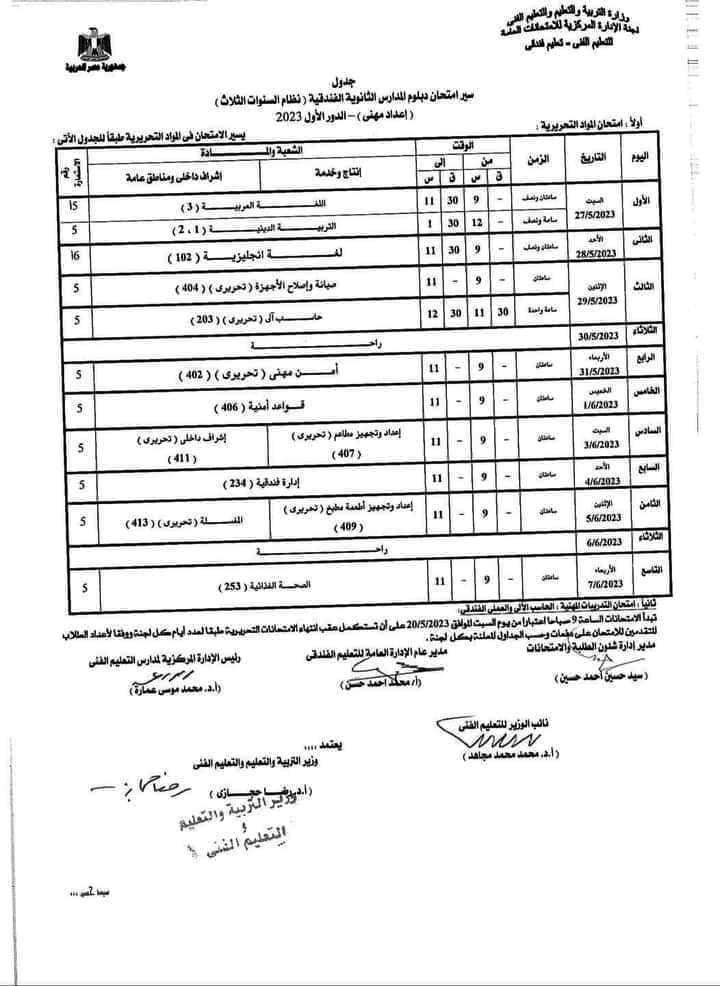 وزارة التربية والتعليم والتعليم الفنى
لجنة الإدارة المركزية للامتحانات العامة
للتعليم الفنى - تعليم فندقى
جمهورية مصر العربية
جدول
سير امتحان دبلوم المدارس الثانوية الفندقية ( نظام السنوات الثلاث )
( إعداد مهنى ) - الدور الأول 2023
أولاً : امتحان المواد التحريرية :
يسير الامتحان فى المواد التحريرية طبقاً للجدول الأتى :
اليوم التاريخ الزمن الوقت الشعبة والمــادة رقم الاستمارة
من إلى إنتاج وخدمة إشراف داخلى ومناطق عامة
ق س ق س
الأول السبت 27/5/2023 ساعتان ونصف - 9 30 11 اللغة العربية ( 3 ) 15
ساعة ونصف - 12 30 1 التربية الدينية ( 1 ، 2 ) 5
الثانى الأحد 28/5/2023 ساعتان ونصف - 9 30 11 لغة انجليزية ( 102 ) 16
الثالث الإثنين 29/5/2023 ساعتان - 9 - 11 صيانة وإصلاح الأجهزة ( تحريرى ) ( 404 ) 5
ساعة واحدة 30 11 30 12 حاسب آلى ( تحريرى ) ( 203 ) 5
الثلاثاء 30/5/2023 راحة
الرابع الأربعاء 31/5/2023 ساعتان - 9 - 11 أمن مهنى ( تحريرى ) ( 402 ) 5
الخامس الخميس 1/6/2023 ساعتان - 9 - 11 قواعد أمنية ( 406 ) 5
السادس السبت 3/6/2023 ساعتان - 9 - 11 إعداد وتجهيز مطاعم ( تحريرى ) ( 407 ) إشراف داخلى ( تحريرى ) ( 411 ) 5
السابع الأحد 4/6/2023 ساعتان - 9 - 11 إدارة فندقية ( 234 ) 5
الثامن الإثنين 5/6/2023 ساعتان - 9 - 11 إعداد وتجهيز أطعمة مطبخ ( تحريرى ) ( 409 ) المغسلة ( تحريرى ) ( 413 ) 5
الثلاثاء 6/6/2023 راحة
التاسع الأربعاء 7/6/2023 ساعتان - 9 - 11 الصحة الغذائية ( 253 ) 5
ثانياً : امتحان التدريبات المهنية : الحاسب الآلى والعملى الفندقى :
تبدأ الامتحانات الساعة 9 صباحا اعتبارا من يوم السبت الموافق 20/5/2023 على أن تستكمل عقب انتهاء الامتحانات التحريرية طبقا لعدد أيام كل لجنة ووفقا لأعداد الطلاب
المتقدمين للامتحان على دفعات وحسب الجداول المعلنة بكل لجنة .
مدير إدارة شئون الطلبة والامتحانات
( سيد حسين أحمد حسين )
مدير عام الإدارة العامة للتعليم الفندقى
( أ/ محمد أحمد حسن )
رئيس الإدارة المركزية لمدارس التعليم الفنى
( أ.د. محمد موسى عمارة )
نائب الوزير للتعليم الفنى
( أ.د. محمد محمد مجاهد )
يعتمد ،،،،
وزير التربية والتعليم والتعليم الفنى
رضا حجازى
( أ.د.رضا حجازى )
وزير التربية والتعليم
و
التعليم الفنى